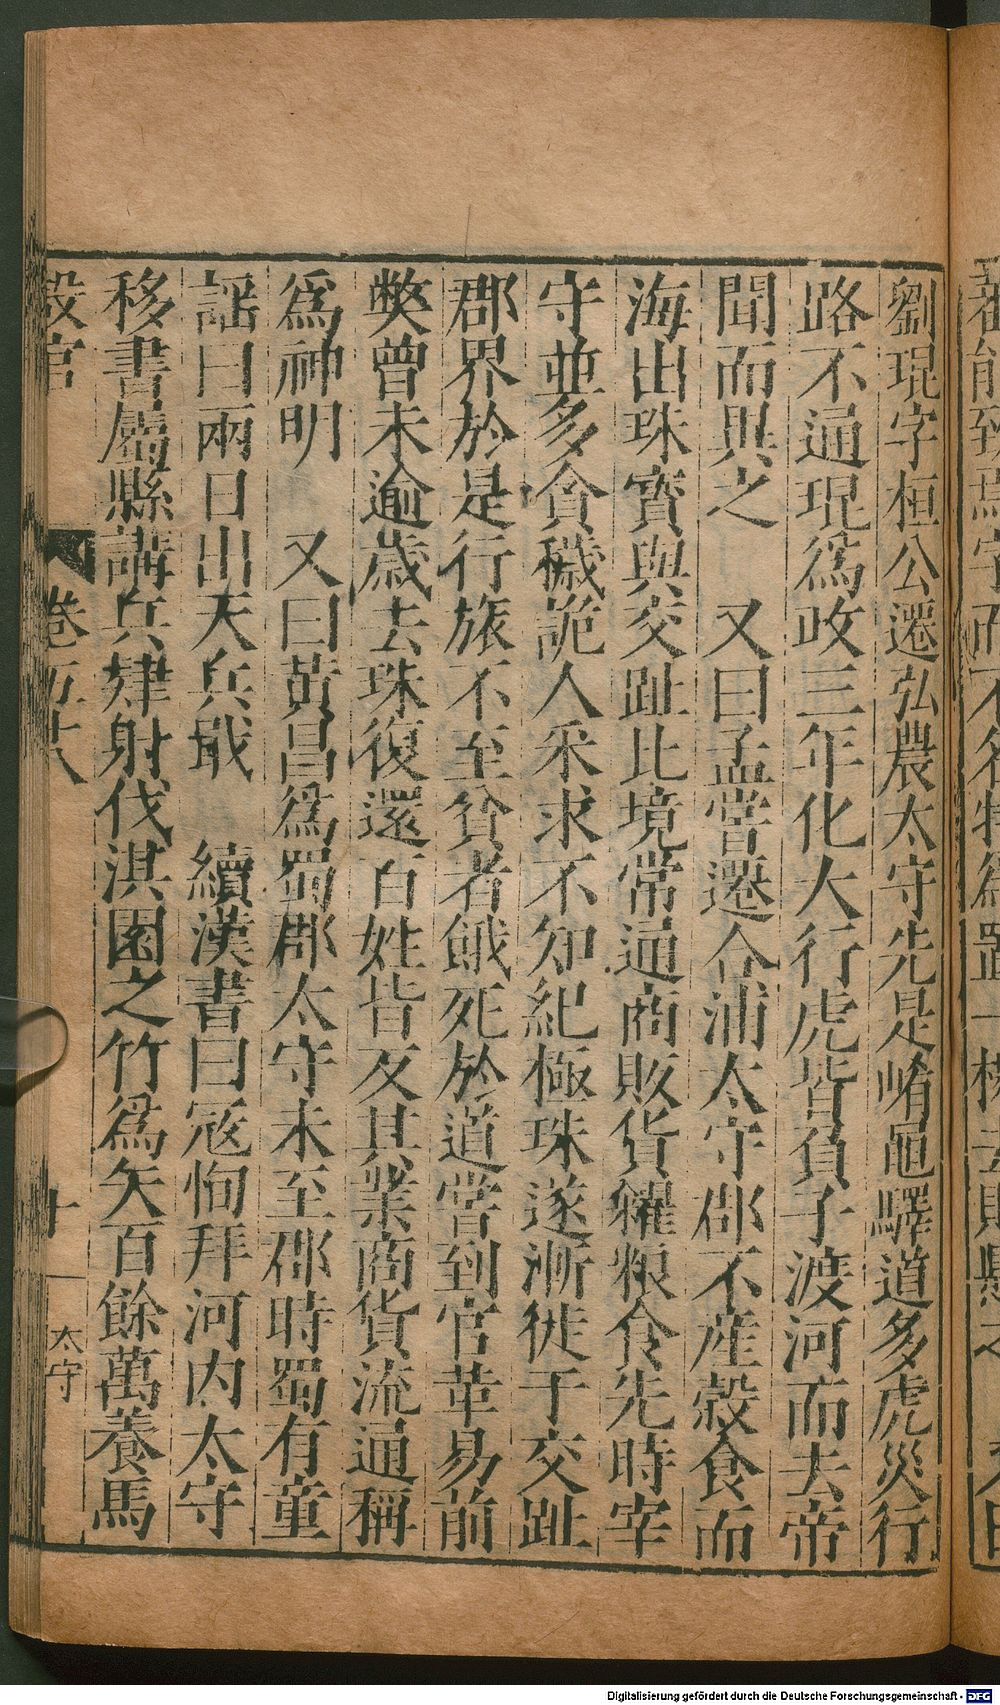 劉琨字桓公遷弘農太守先是崤黽驛道多虎災行
路不通琨爲政三年化大行虎皆負子渡河而去帝
聞而異之　又曰孟嘗遷合浦太守郡不產穀食而
海出珠寳與交趾比境常通商販貨糴粮食先時宰
守並多貪穢詭人采求不知紀極珠遂漸徙于交趾
郡界於是行旅不至貧者餓死於道嘗到官革易前
獘曾未逾歳去珠復還百姓皆反其業商貨流通稱
爲神明　又曰黄昌爲蜀郡太守未至郡時蜀有童
謡曰兩日出天兵戢　續漢書曰寇恂拜河内太守
移書屬縣講兵肄射伐淇園之竹爲矢百餘萬養馬
設官
卷五十八
十
太守
Digitalisierung gefördert durch die Deutsche Forschungsgemeinschaft - DFG